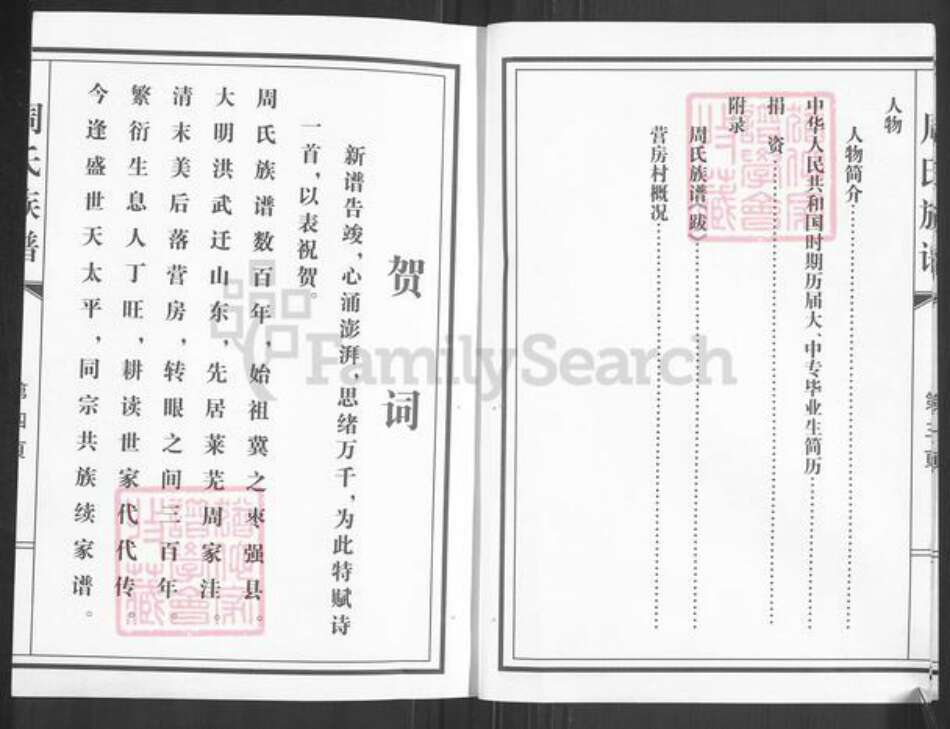 周氏族谱
第三页
人物
人物简介
中华人民共和国时期历届大、中专毕业生简历
捐 资
附录
周氏族谱(跋)
营房村概况
贺 词
新谱告竣,心涌澎湃,思绪万千,为此特赋诗
一首,以表祝贺。
周氏族谱数百年,始祖冀之枣强县。
大明洪武迁山东,先居莱芜周家洼。
清末美后落营房,转眼之间三百年。
繁衍生息人丁旺,耕读世家代代传。
今逢盛世天太平,同宗共族续家谱。
周氏族谱
第四页
FamilySearch